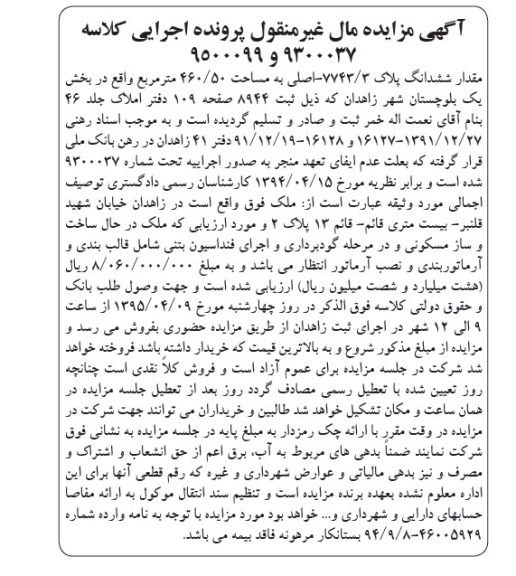 آگهی مزایده مال غیرمنقول پرونده اجرایی کلاسه
۹۳۰۰۰۳۷ و ۹۵۰۰۰۹۹
مقدار ششدانگ پلاک ۷۷۴۳/۳-اصلی به مساحت ۴۶۰/۵۰ مترمربع واقع در بخش
یک بلوچستان شهر زاهدان که ذیل ثبت ۸۹۴۴ صفحه ۱۰۹ دفتر املاک جلد ۴۶
بنام آقای نعمت اله خمر ثبت و صادر و تسلیم گردیده است و به موجب اسناد رهنی
۱۶۱۲۷-۱۳۹۱/۱۲/۲۷ و ۱۶۱۲۸-۹۱/۱۲/۱۹ دفتر ۴۱ زاهدان در رهن بانک ملی
قرار گرفته که بعلت عدم ایفای تعهد منجر به صدور اجراییه تحت شماره ۹۳۰۰۰۳۷
شده است و برابر نظریه مورخ ۱۳۹۴/۰۴/۱۵ کارشناسان رسمی دادگستری توصیف
اجمالی مورد وثیقه عبارت است از: ملک فوق واقع است در زاهدان خیابان شهید
قلنبر- بیست متری قائم- قائم ۱۳ پلاک ۲ و مورد ارزیابی که ملک در حال ساخت
و ساز مسکونی و در مرحله گودبرداری و اجرای فنداسیون بتنی شامل قالب بندی و
آرماتوربندی و نصب آرماتور انتظار می باشد و به مبلغ ۸/۰۶۰/۰۰۰/۰۰۰ ریال
(هشت میلیارد و شصت میلیون ریال) ارزیابی شده است و جهت وصول طلب بانک
و حقوق دولتی کلاسه فوق الذکر در روز چهارشنبه مورخ ۱۳۹۵/۰۴/۰۹ از ساعت
۹ الی ۱۲ شهر در اجرای ثبت زاهدان از طریق مزایده حضوری بفروش می رسد و
مزایده از مبلغ مذکور شروع و به بالاترین قیمت که خریدار داشته باشد فروخته خواهد
شد شرکت در جلسه مزایده برای عموم آزاد است و فروش کلاً نقدی است چنانچه
روز تعیین شده با تعطیل رسمی مصادف گردد روز بعد از تعطیل جلسه مزایده در
همان ساعت و مکان تشکیل خواهد شد طالبین و خریداران می توانند جهت شرکت در
مزایده در وقت مقرر با ارائه چک رمزدار به مبلغ پایه در جلسه مزایده به نشانی فوق
شرکت نمایند ضمناً بدهی های مربوط به آب، برق اعم از حق انشعاب و اشتراک و
مصرف و نیز بدهی مالیاتی و عوارض شهرداری و غیره که رقم قطعی آنها برای این
اداره معلوم نشده بعهده برنده مزایده است و تنظیم سند انتقال موکول به ارائه مفاصا
حسابهای دارایی و شهرداری و... خواهد بود مورد مزایده با توجه به نامه وارده شماره
۴۶۰۰۵۹۲۹-۹۴/۹/۸ بستانکار مرهونه فاقد بیمه می باشد.